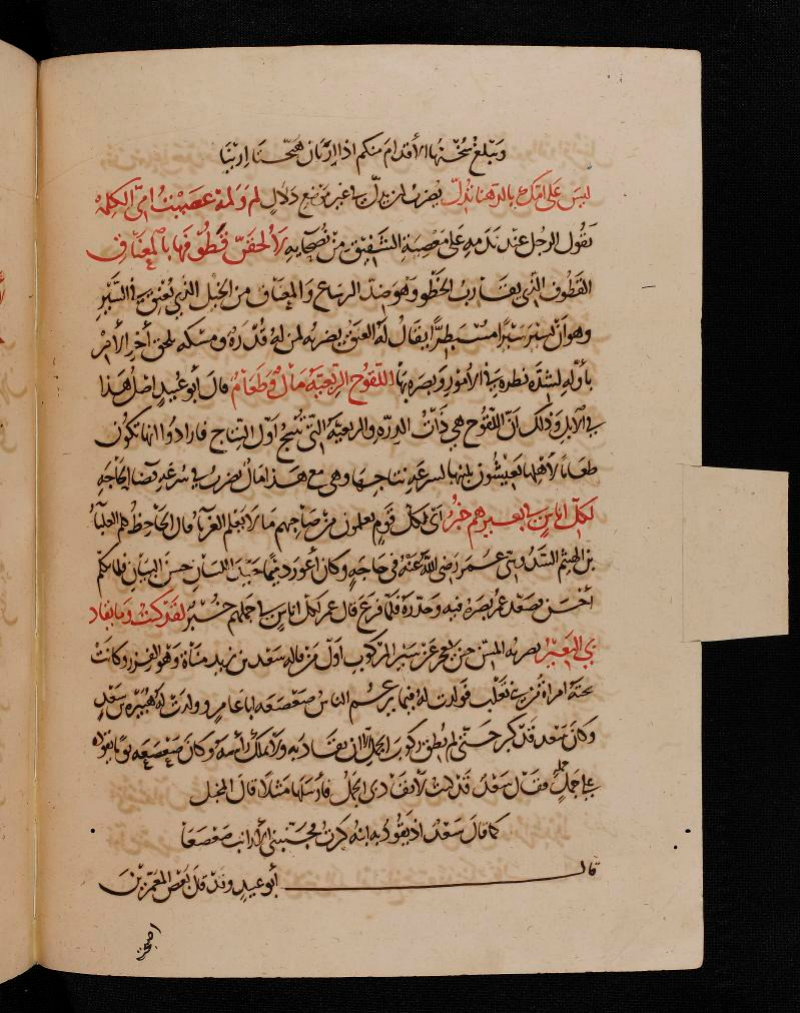 وتبلغ سخنها الأقدام منكم اذا ارتان هيّجتا ارتينا
ليس على امّك بالدهنا تدلّ يضرب لمن يدلّ في غير موضع دلال لم ولمه عصيت امّي الكلمة
تقول الرجل عند ندمه على معصية الشفيق من نصحايه لالحقن قطوفها بالمعناق
القطوف الذي يقارب الخطو وهو ضد الوساع والمعناق من الخيل الذي يعنق في السير
وهو أن يسير سيرا مسبطرّا يقال له العنق يضربه لمن له قدرة ومسكة يلحق آخر الأمر
بأوله لشدة نظره في الأمور وبصره بها اللقوح الربعيّة مال وطعام قال أبو عبيد اصل هذا
في الابل وذلك انّ اللقوح هي ذات الدرّة والربعيّة التي تنتج أوّل النتاج فارادوا انها تكون
طعاما لاهلها يعيشون بلبنها لسرعة نتاجها وهي مع هذا مال يضرب في سرعة قضا الحاجة
لكلّ اناس في بعيرهم خبر أي لكل قوم يعلمون من صاحبهم ما لا يعلم الغربآ قال الجاحظ كلم العلبآ
بن الهيثم السدوسي عمر رضي الله عنه في حاجة وكان أعور دميما جيد اللسان حسن البيان فلما تكلّم
أحسن فصعد عمر بصره فيه وحدّره فلمّا فرغ قال عمر لكل اناس في جملهم خبر لقد كنت وما يقاد
بي البعير يضربه المسنّ حين يعجز عن سير المركوب اول من قاله سعد بن زيد مناة وهو الفزر وكانت
تحته امراة من بني تغلب فولدت له فيما يزعم الناس صعصعه ابا عامر وولدت له هبيرة بن سعد
وكان سعد قد كبر حتى لم يطق ركوب الجمل الّا ان يقاد به ولا يملك رأسه وكان صعصعه يوما يقوده
على جمله فقال سعد قد كنت لا يقاد بي الجمل فأرسلها مثلا قال المخبل
كما قال سعد اذ يقود به ابنه كبرت فجنّبني الأرانب صعصعا
قال أبو عبيد وقد قال بعض المعمّرين
اصبحت